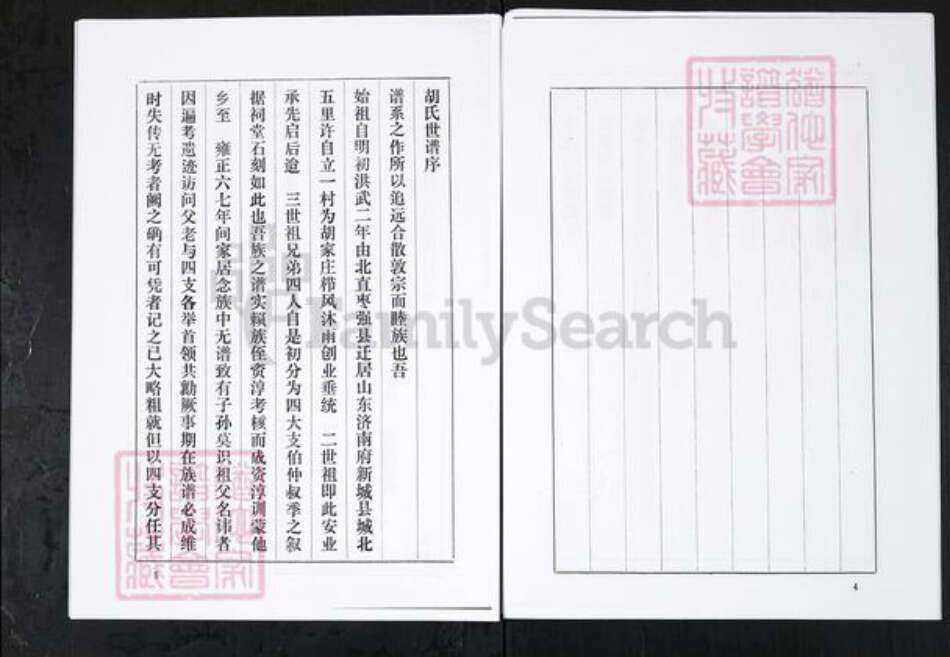 胡氏世谱序
谱系之作所以追远合散敦宗而睦族也吾
始祖自明初洪武二年由北直枣强县迁居山东济南府新城县城北
五里许自立一村为胡家庄栉风沐雨创业垂统 二世祖即此安业
承先启后迨 三世祖兄弟四人自是初分为四大支伯仲叔季之叙
据祠堂石刻如此也吾族之谱实赖族侄资淳考核而成资淳训蒙他
乡至 雍正六七年间家居念族中无谱致有子孙莫识祖父名讳者
因遍考遗迹访问父老与四支各举首领共勷厥事期在族谱必成维
时失传无考者阙之确有可凭者记之已大略粗就但以四支分任其
1
4
FamilySearch
谱学会
收藏
谱学会
收藏